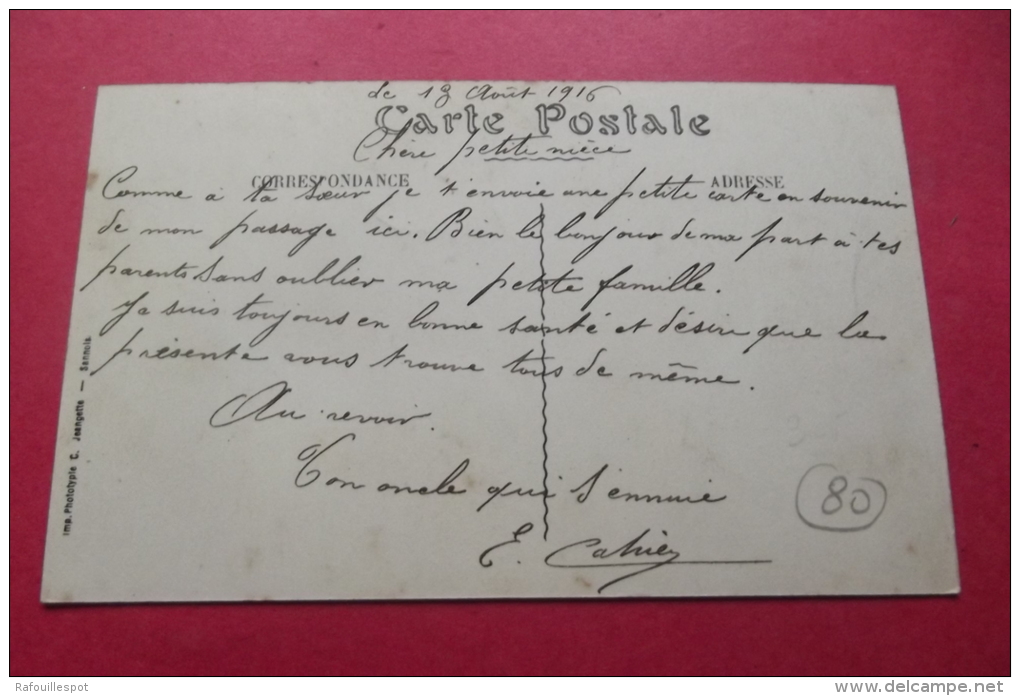 Le 13 Août 1916
Carte Postale
Chère petite nièce
CORRESPONDANCE
ADRESSE
Comme à ta sœur je t'envoie une petite carte en souvenir
de mon passage ici. Bien le bonjour de ma part à tes
parents sans oublier ma petite famille.
Je suis toujours en bonne santé et désire que la
présente vous trouve tous de même.
Au revoir.
Ton oncle qui s'ennuie
E.
80
Imp. Phototypie C. Jeangette — Sannois.
Rafouillespot
www.delcampe.net